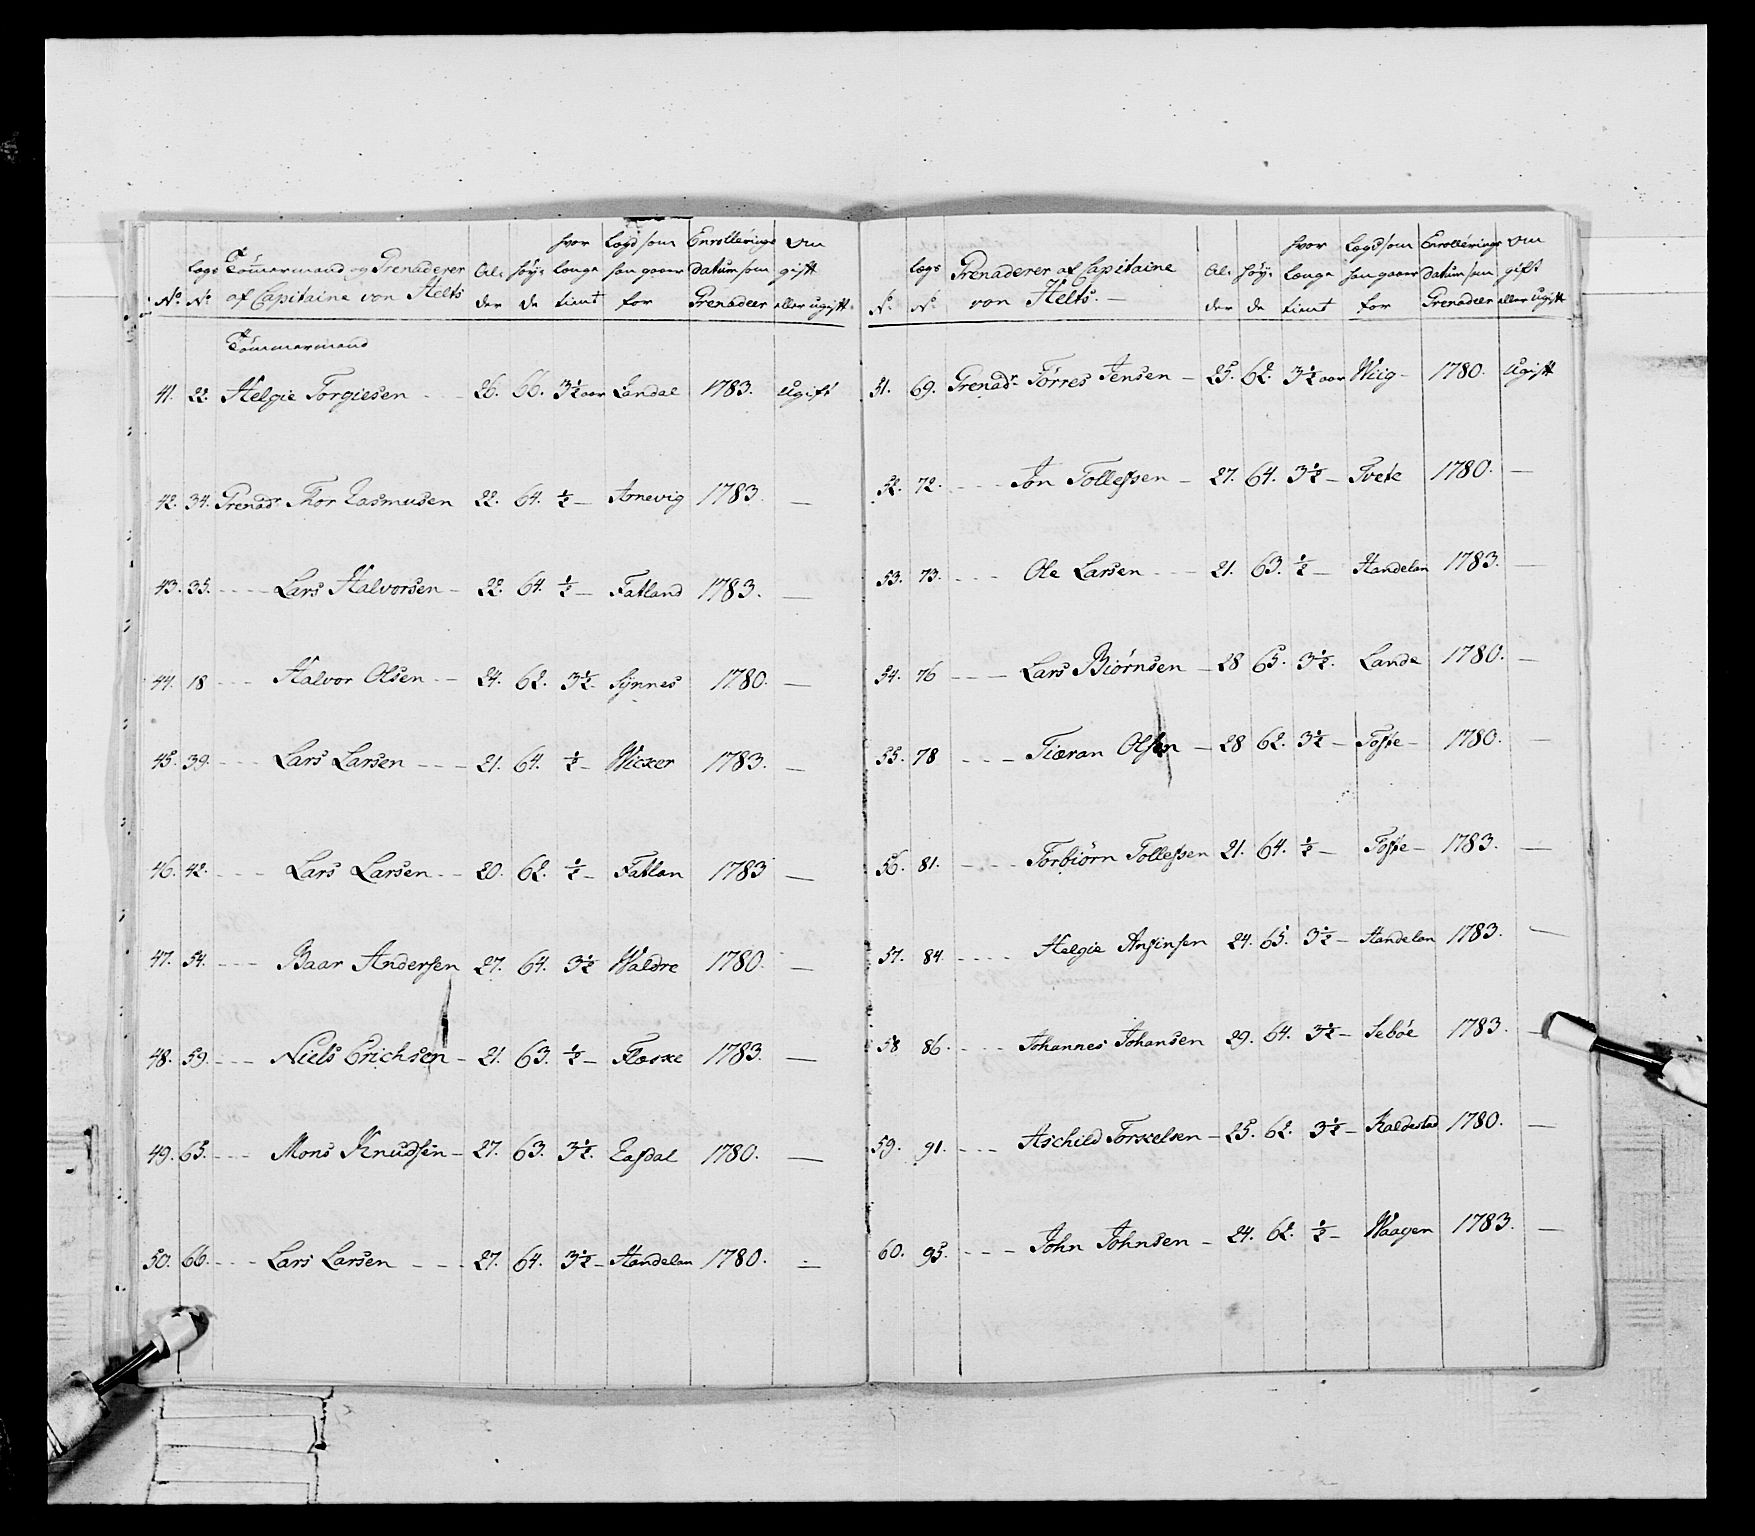 No. Lægs No. Tömmermand og Grenaderer af Capitaine von Helts Alder Höyde hvor længe tient Lægd som han gaaer for Enrollerings datum som Grenadeer Om gift eller ugift
Tömmermand
41. 22. Helgie Torgiesen - - 26. 66. 3½ aar Landal 1783. Ugift
42. 34. Grenadr Thor Rasmusen 22. 64. ½ — Arnevig 1783. —
43. 35. - - - - Lars Halvorsen - 22. 64. ½ — Fatland 1783. —
44. 18 - - - Halvor Olsen - - 24. 62. 3½ - Synnes 1780. —
45. 39. - - - Lars Larsen - - - 21. 64. ½ - Wicker 1783. —
46. 42. - - - - Lars Larsen - - 20. 62. ½ - Fatlan 1783 —
47. 54. - - - Baar Andersen 27. 64. 3½ Waldre 1780. —
48. 59. - - - - Niels Erichsen - 21. 63. ½ - Flæske 1783. —
49. 65. - - - - Mons Knudsen - 27. 63. 3½. 1780. —
50. 66. - - - - Lars Larsen - - - 27. 64. 3½ - Handelan 1780. —
No. Lægs No. Grenaderer af Capitaine von Helts. — Alder Höyde hvor længe tient Lægd som han gaaer for Enrollerings datum som Grenadeer Om gift eller ugift
51. 69. Grenadr Törres Jensen - 25. 62. 3½ aar Wiig - 1780. Ugift
52. 72. - - - - Jon Tollefsen - 27. 64. 3½ - Tvete 1780. —
53. 73. - - - - Ole Larsen - - - 21. 63. ½ - Handelan 1783.
54. 76 - - - - Lars Biörnsen - 28 65. 3½. Lande 1780. —
55. 78 - - - - Tiæran Olsen - 28 62. 3½ - Tofte - 1780. —
56. 81. - - - - Torbiörn Tollefsen 21. 64. ½ - Tofte - 1783. —
57. 84. - - - - Helgie 24. 65. 3½ - Handelan 1783. —
58 86. - - - - Johannes Johansen 29. 64. 3½ - Seböe 1783. —
59. 91. - - - Aschild Torkelsen - 25. 62. 3½ - Kaldestad 1780. —
60. 95. - - - - John Johnsen - 24. 62. ½ - Waagen 1783. —